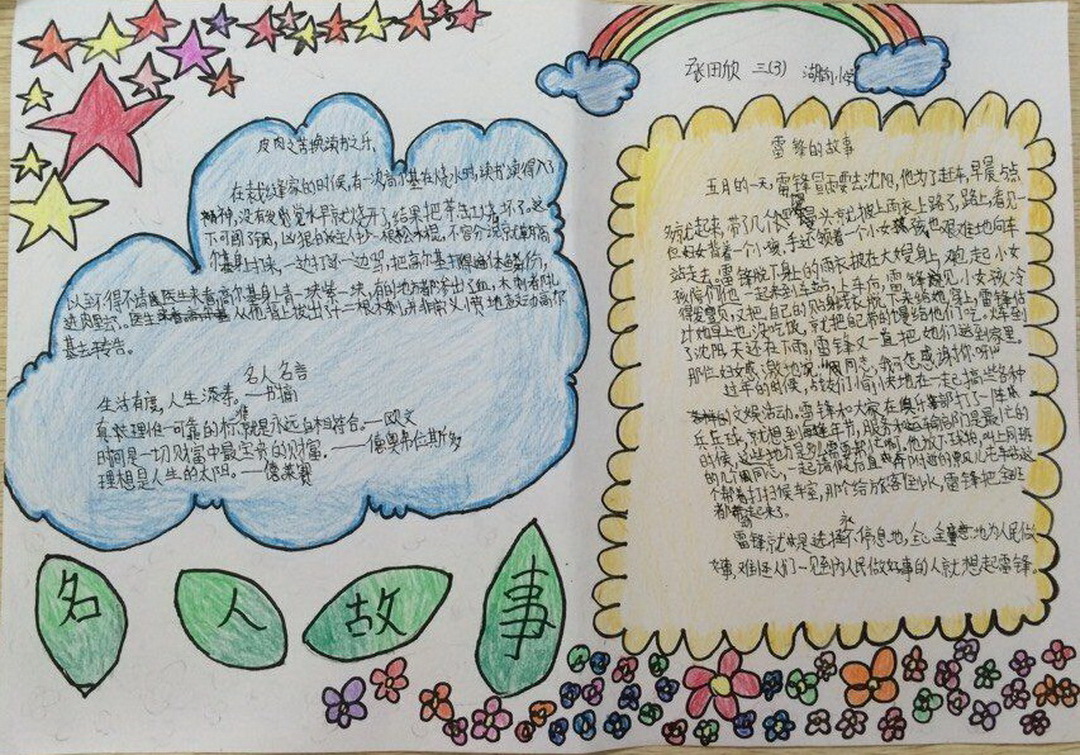 张田欣 三(3) 湖前小学
皮肉之苦换读书之乐
在裁缝家的时候,有一次高尔基在烧水时,读书读得入了
神,没有发觉水早就烧开了,结果把茶壶烧坏了。这
下可闯了祸,凶狠的主人抄一根松木棍,不容分说就朝高
尔基身上打来,一边打,一边骂,把高尔基打得遍体鳞伤,
以到不得不请医生来看高尔基身上青一块紫一块,有的地方都渗出了血,木刺都扎
进肉里去。医生从他背上拔出了十二根木刺,并非常义愤地鼓动高尔
基去控告。
名人名言
生活有度,人生添寿。—书摘
真理唯一可靠的标准就是永远自相符合。—欧文
时间是一切财富中最宝贵的财富。——德奥弗拉斯多
理想是人生的太阳。—德莱赛
名人故事
雷锋的故事
五月的一天,雷锋冒雨要去沈阳,他为了赶车,早晨5点
多就起来,带了几个馒头就披上雨衣上路了,路上,看见一
位妇女背着一个小孩,手还领着一个小女孩也艰难地向车
站走去。雷锋脱下身上的雨衣披在大嫂身上,抱起小女
孩陪们他一起来到车站,上车后,雷锋见小女孩冷
得发颤,又把自己的贴身线衣脱下来给她穿上,雷锋估
计她早上也没吃饭,就把自己带的馒给他们吃。火车到
了沈阳,天还在下雨,雷锋又一直把她们送到家里。
那位妇女感激地说:"同志,我可怎感谢你呀!"
过年的时候,战友们愉快地在一起搞些各种
文娱活动。雷锋和大家在俱乐部打了一阵
乒乓球,就想到每年年节,服务和运输部门是最忙的
时候,这些地方多么需要帮忙啊。他放下球拍,叫上同班
的几个同志,一起请假后直奔附近的瓢儿屯车站这
个帮着打扫候车室,那个给旅客倒水,雷锋把全班
都带起来了。
雷锋就是选择永不停息地,全心全意地为人民做
好事,难怪人们一见到为人民做好事的人就想起雷锋。